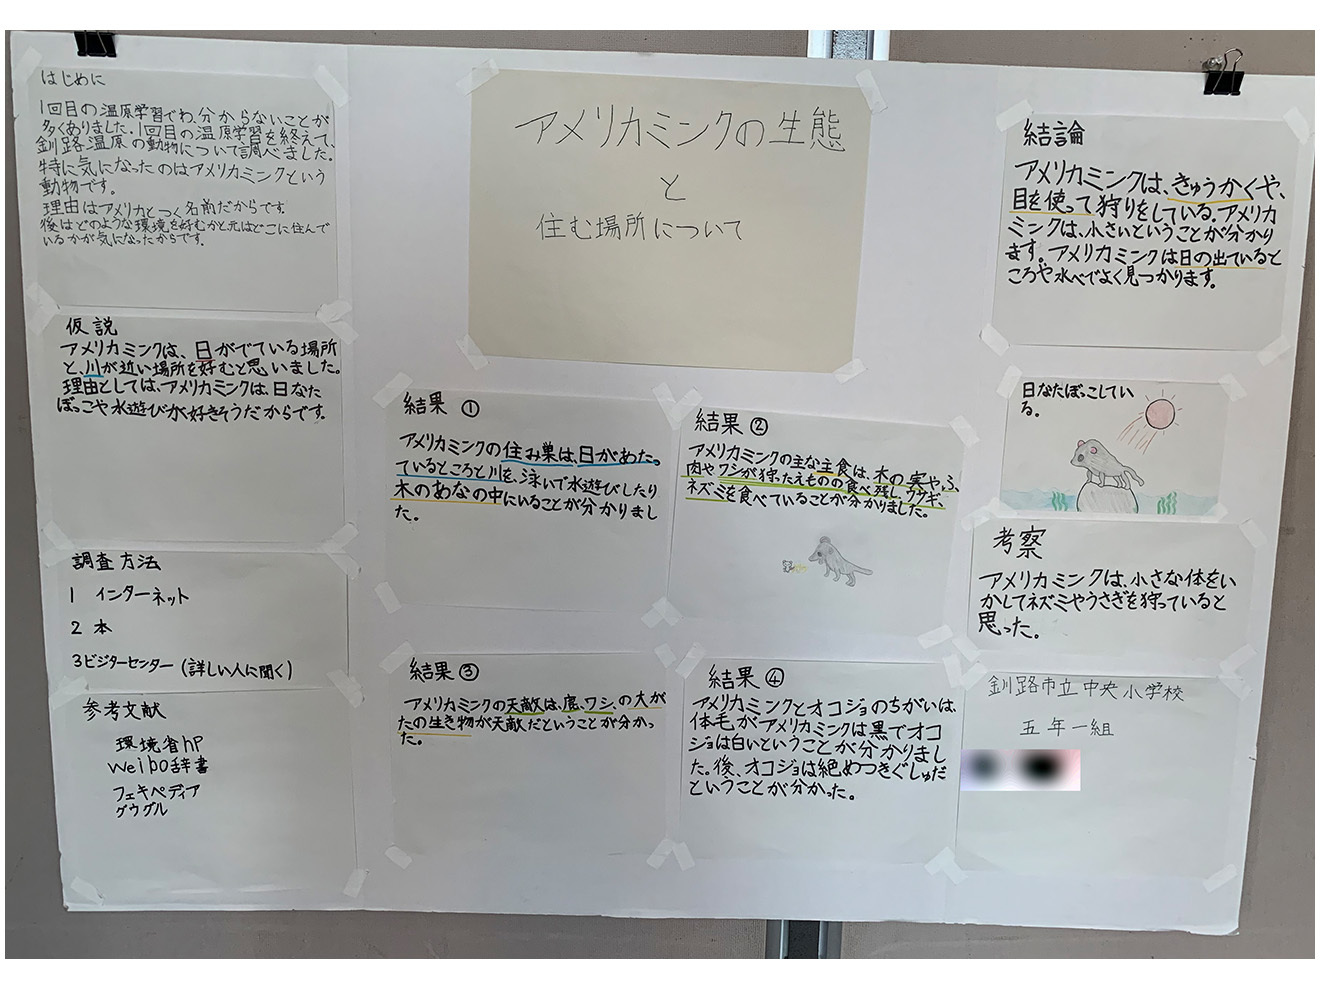 はじめに
1回目の温原学習でわ、分からないことが
多くありました。1回目の温原学習を終えて、
釧路温原の動物について調べました。
特に気になったのはアメリカミンクという
動物です。
理由はアメリカとつく名前だからです。
後はどのような環境を好むかと元はどこに住んで
いるかが気になったからです。
仮説
アメリカミンクは、日がでている場所
と、川が近い場所を好むと思いました。
理由としては、アメリカミンクは、日なた
ぼっこや水遊びが好きそうだからです。
調査方法
1 インターネット
2 本
3ビジターセンター(詳しい人に聞く)
参考文献
環境省hP
Weibo辞書
フェキペディア
グウグル
アメリカミンクの生態
と
住む場所について
結果 ①
アメリカミンクの住み巣は、日があた。
ているところと川を、泳いで水遊びしたり
木のあなの中にいることが分かりまし
た。
結果 ②
アメリカミンクの主な主食は、木の実やふ、
肉やワシが狩ったえものの食べ残し、ウサギ、
ネズミを食べていることが分かりました。
結果 ③
アメリカミンクの天敵は、鹿、ワシ、の大が
たの生き物が天敵だということが分かっ
た。
結果 ④
アメリカミンクとオコジョのちがいは、
体毛がアメリカミンクは黒でオコ
ジョは白いということが分かりまし
た。後、オコジョは絶めつきぐしゅだ
ということが分かった。
結論
アメリカミンクは、きゅうかくや、
目を使って狩りをしている。アメリカ
ミンクは、小さいということが分かり
ます。アメリカミンクは日の出ていると
ころや水べでよく見つかります。
日なたぼっこしてい
る。
考察
アメリカミンクは、小さな体をい
かしてネズミやうさぎを狩っていると
思った。
釧路市立中央小学校
五年一組